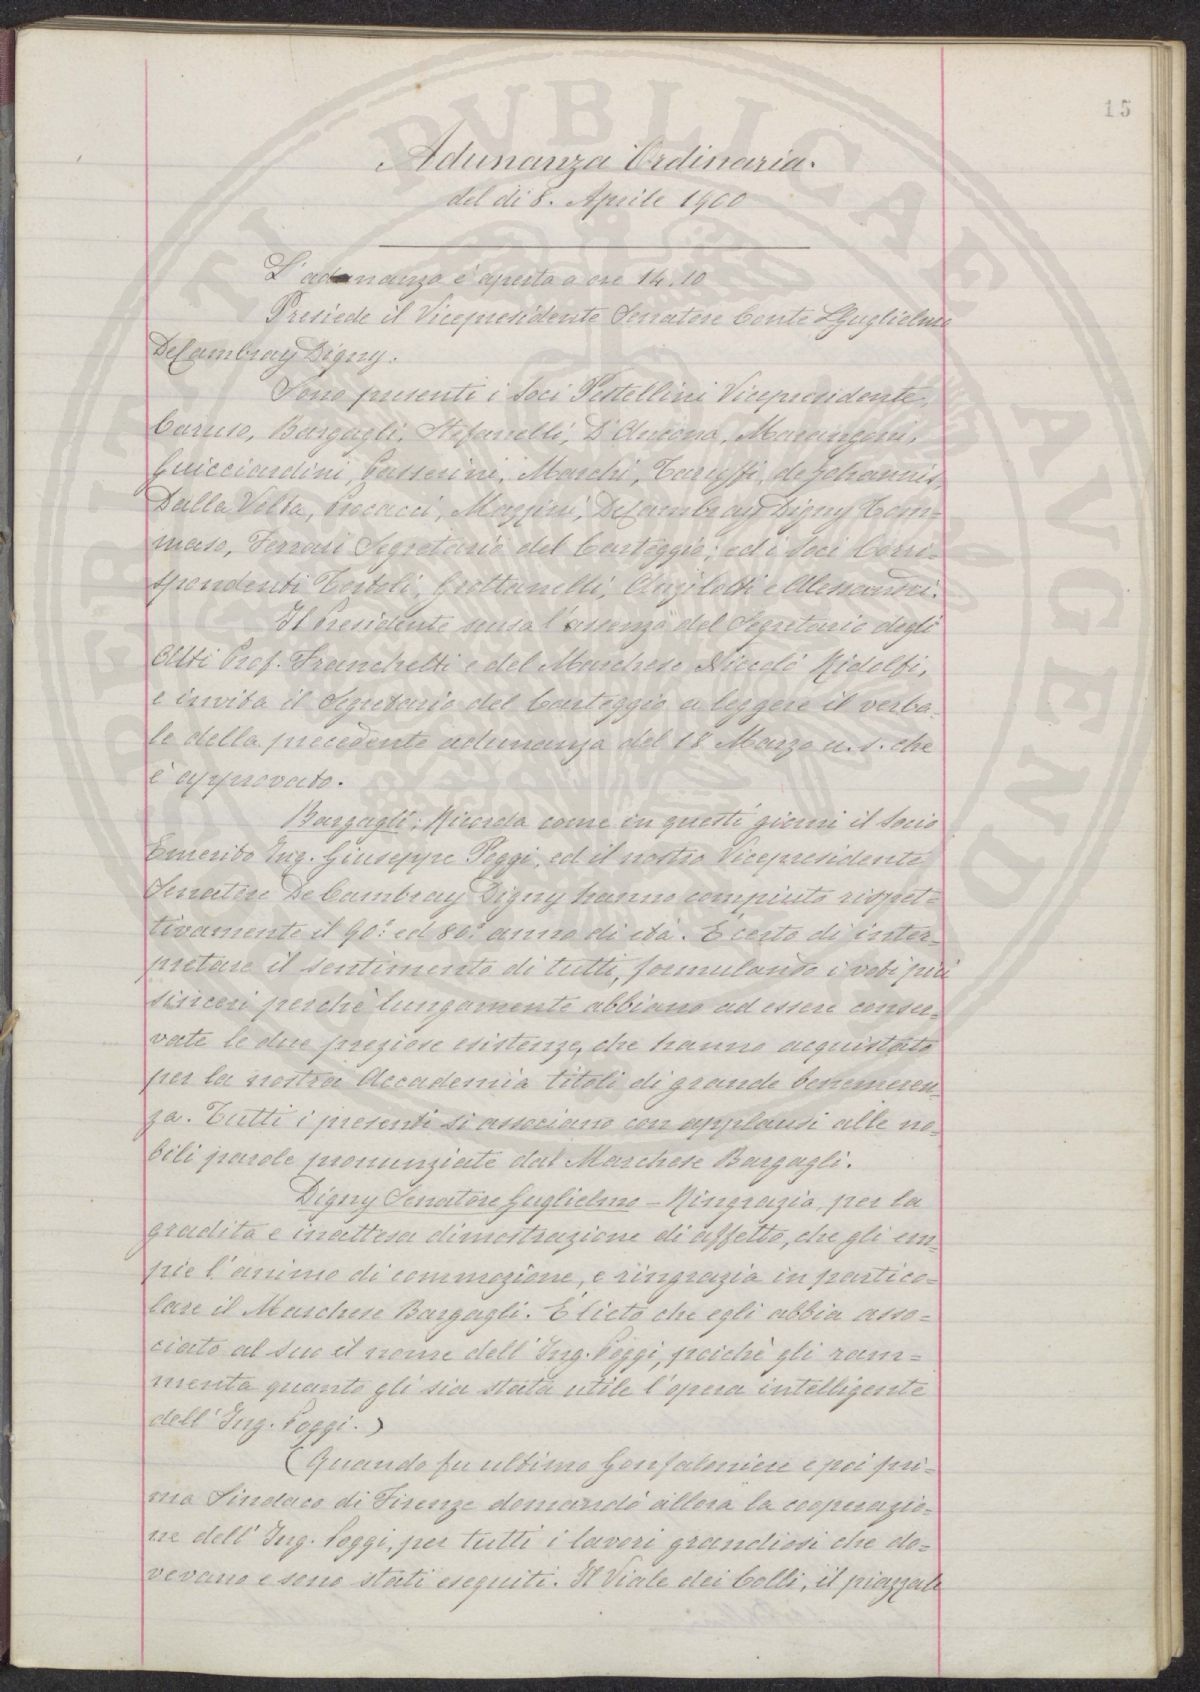 15
Adunanza Ordinaria.
del dì 8. Aprile 1900
L'adunanza è aperta a ore 14.10
Presiede il Vicepresidente Senatore Conte Guglielmo
De Cambray Digny.
Sono presenti i Soci Pestellini Vicepresidente,
Caruso, Bargagli, Stefanelli, D'Ancona, Marangoni,
Guicciardini, Passerini, Marchi, Taruffi, de Johannis,
Dalla Volta, Procacci, Mazzini, De Cambray Digny Tom=
maso, Ferrari Segretario del Carteggio; ed i Soci Corri=
spondenti Tortoli, Grottanelli, Angilotti e Alessandri.
Il Presidente scusa l'assenza del Segretario degli
Atti Prof. Franchetti e del Marchese Niccolò Ridolfi,
e invita il Segretario del Carteggio a leggere il verba=
le della precedente adunanza del 18 Marzo u. s. che
è approvato.
Bargagli; Ricorda come in questi giorni il Socio
Emerito Ing. Giuseppe Poggi, ed il nostro Vicepresidente
Senatore De Cambray Digny hanno compiuto rispet=
tivamente il 90.º ed 80.º anno di età. È certo di inter=
pretare il sentimento di tutti, formulando i voti più
sinceri perchè lungamente abbiano ad essere conser=
vate le due preziose esistenze, che hanno acquistato
per la nostra Accademia titoli di grande benemeren=
za. Tutti i presenti si associano con applausi alle no=
bili parole pronunziate dal Marchese Bargagli.
Digny Senatore Guglielmo - Ringrazia, per la
gradita e inattesa dimostrazione di affetto, che gli em=
pie l'animo di commozione, e ringrazia in partico=
lare il Marchese Bargagli. È lieto che egli abbia asso=
ciato al suo il nome dell'Ing. Poggi, poichè gli ram=
menta quanto gli sia stata utile l'opera intelligente
dell'Ing. Poggi.)
(Quando fu ultimo Gonfaloniere e poi pri=
mo Sindaco di Firenze domandò allora la cooperazio=
ne dell'Ing. Poggi, per tutti i lavori grandiosi che do=
vevano e sono stati eseguiti. Il Viale dei Colli, il piazzale